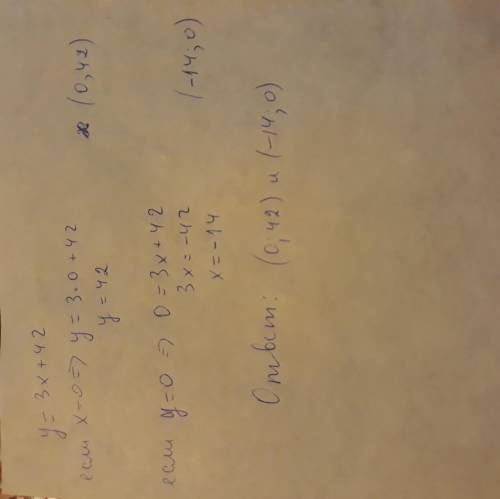 y = 3x + 42
если x = 0 => y = 3·0 + 42 (0; 42)
y = 42
если y = 0 => 0 = 3x + 42 (-14; 0)
3x = -42
x = -14
Ответ: (0; 42) и (-14; 0)